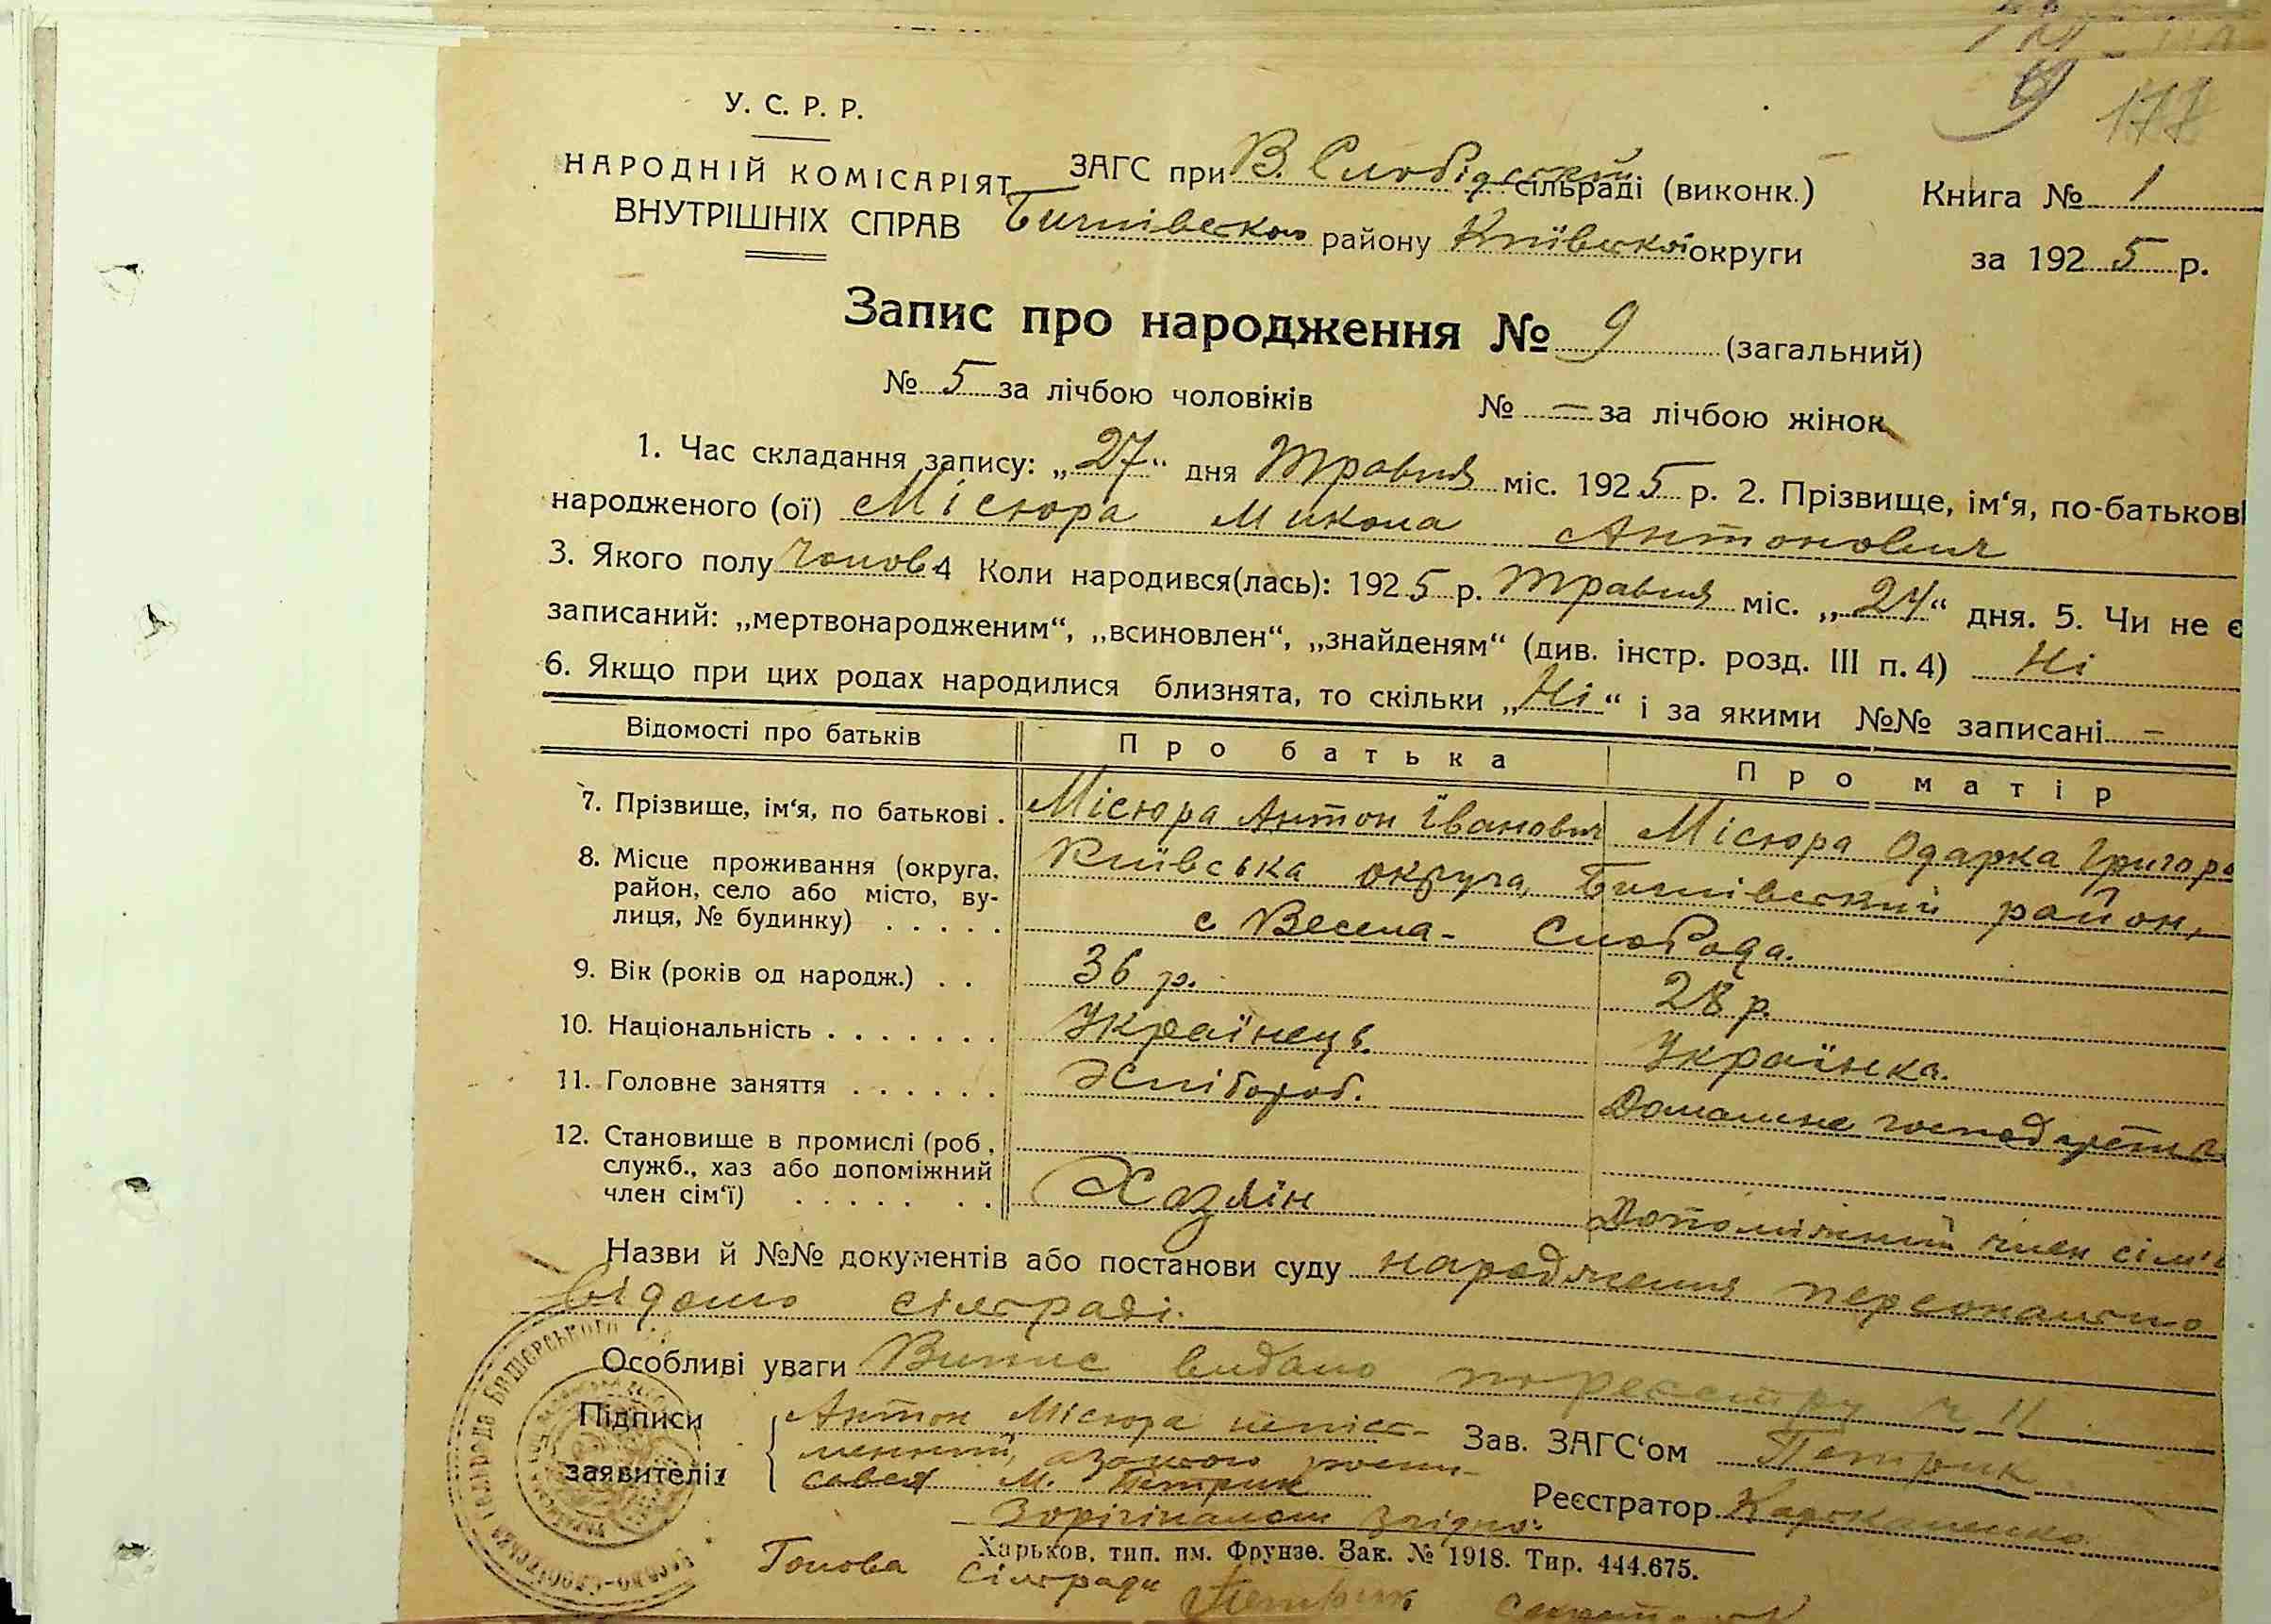 177
У. С. Р. Р.
НАРОДНІЙ КОМІСАРІЯТ
ВНУТРІШНІХ СПРАВ
ЗАГС при В. Слобідській сільраді (виконк.)
Бишівського району Київської округи
Книга № 1
за 1925 р.
Запис про народження № 9 (загальний)
№ 5 за лічбою чоловіків № — за лічбою жінок
1. Час складання запису: „27“ дня Травня міс. 1925 р. 2. Прізвище, ім‘я, по-батькові
народженого (ої) Місюра Микола Антонович
3. Якого полу Чолов 4 Коли народився(лась): 1925 р. Травня міс. „24“ дня. 5. Чи не є
записаний: „мертвонародженим“, „всиновлен“, „знайденям“ (див. інстр. розд. III п. 4) Ні
6. Якщо при цих родах народилися близнята, то скільки „Ні“ і за якими №№ записані —
Відомості про батьків Про батька Про матір
7. Прізвище, ім‘я, по батькові . Місюра Антон Іванович Місюра Одарка Григоро
8. Місце проживання (округа, район, село або місто, вулиця, № будинку) . . . . .
Київська округа, Бишівський район,
с Весела - Слобода.
9. Вік (років од народж.) . . 36 р. 28 р.
10. Національність . . . . . . . Українець. Українка.
11. Головне заняття . . . . . . Хліbороб. Домашнє господарство
12. Становище в промислі (роб.,
служб., хаз або допоміжний
член сім‘ї) . . . . . . . Хозяїн Допоміжний член сім'ї
Назви й №№ документів або постанови суду народження персонально
відомо сільраді.
Особливі уваги Випис видано по реєстру ч 11
Підписи
заявителів
Антон Місюра неписьменний, за нього росписався М. Петрик
Зав. ЗАГС‘ом Петрик
Реєстратор
Зорігіналом згідно:
Харьков, тип. им. Фрунзе. Зак. № 1918. Тир. 444.675.
Голова Сільради Петрик